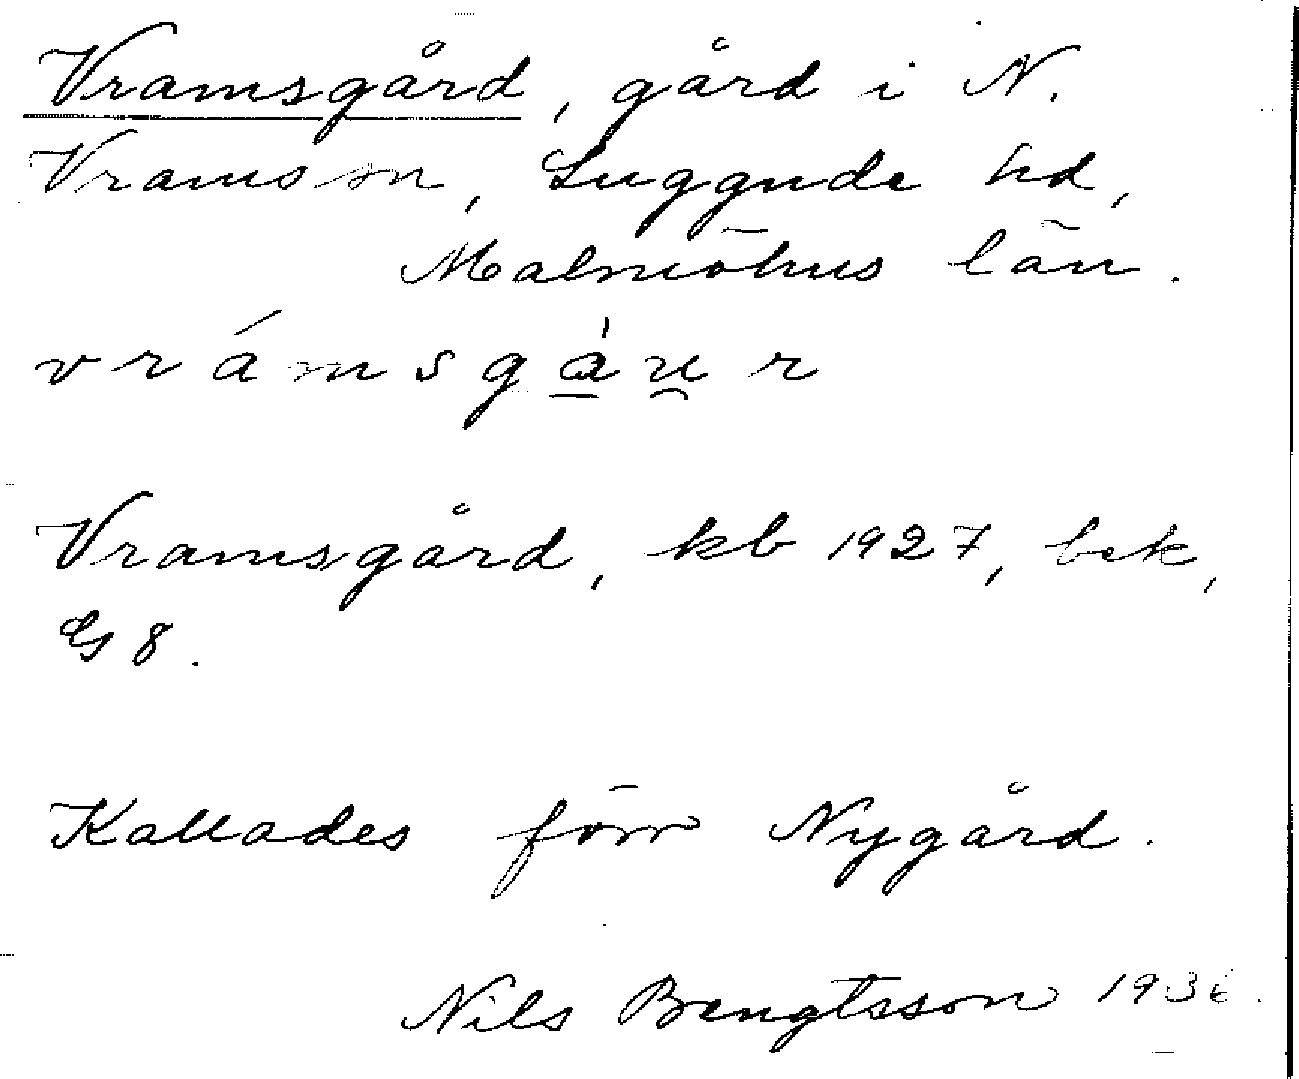 Vramsgård, gård i N.
Vrams sn, Luggude hd,
Malmöhus län.
vrámsgàu̯r
Vramsgård, kb 1927, bek,
G 8.
Kallades förr Nygård.
Nils Bengtsson 1936.